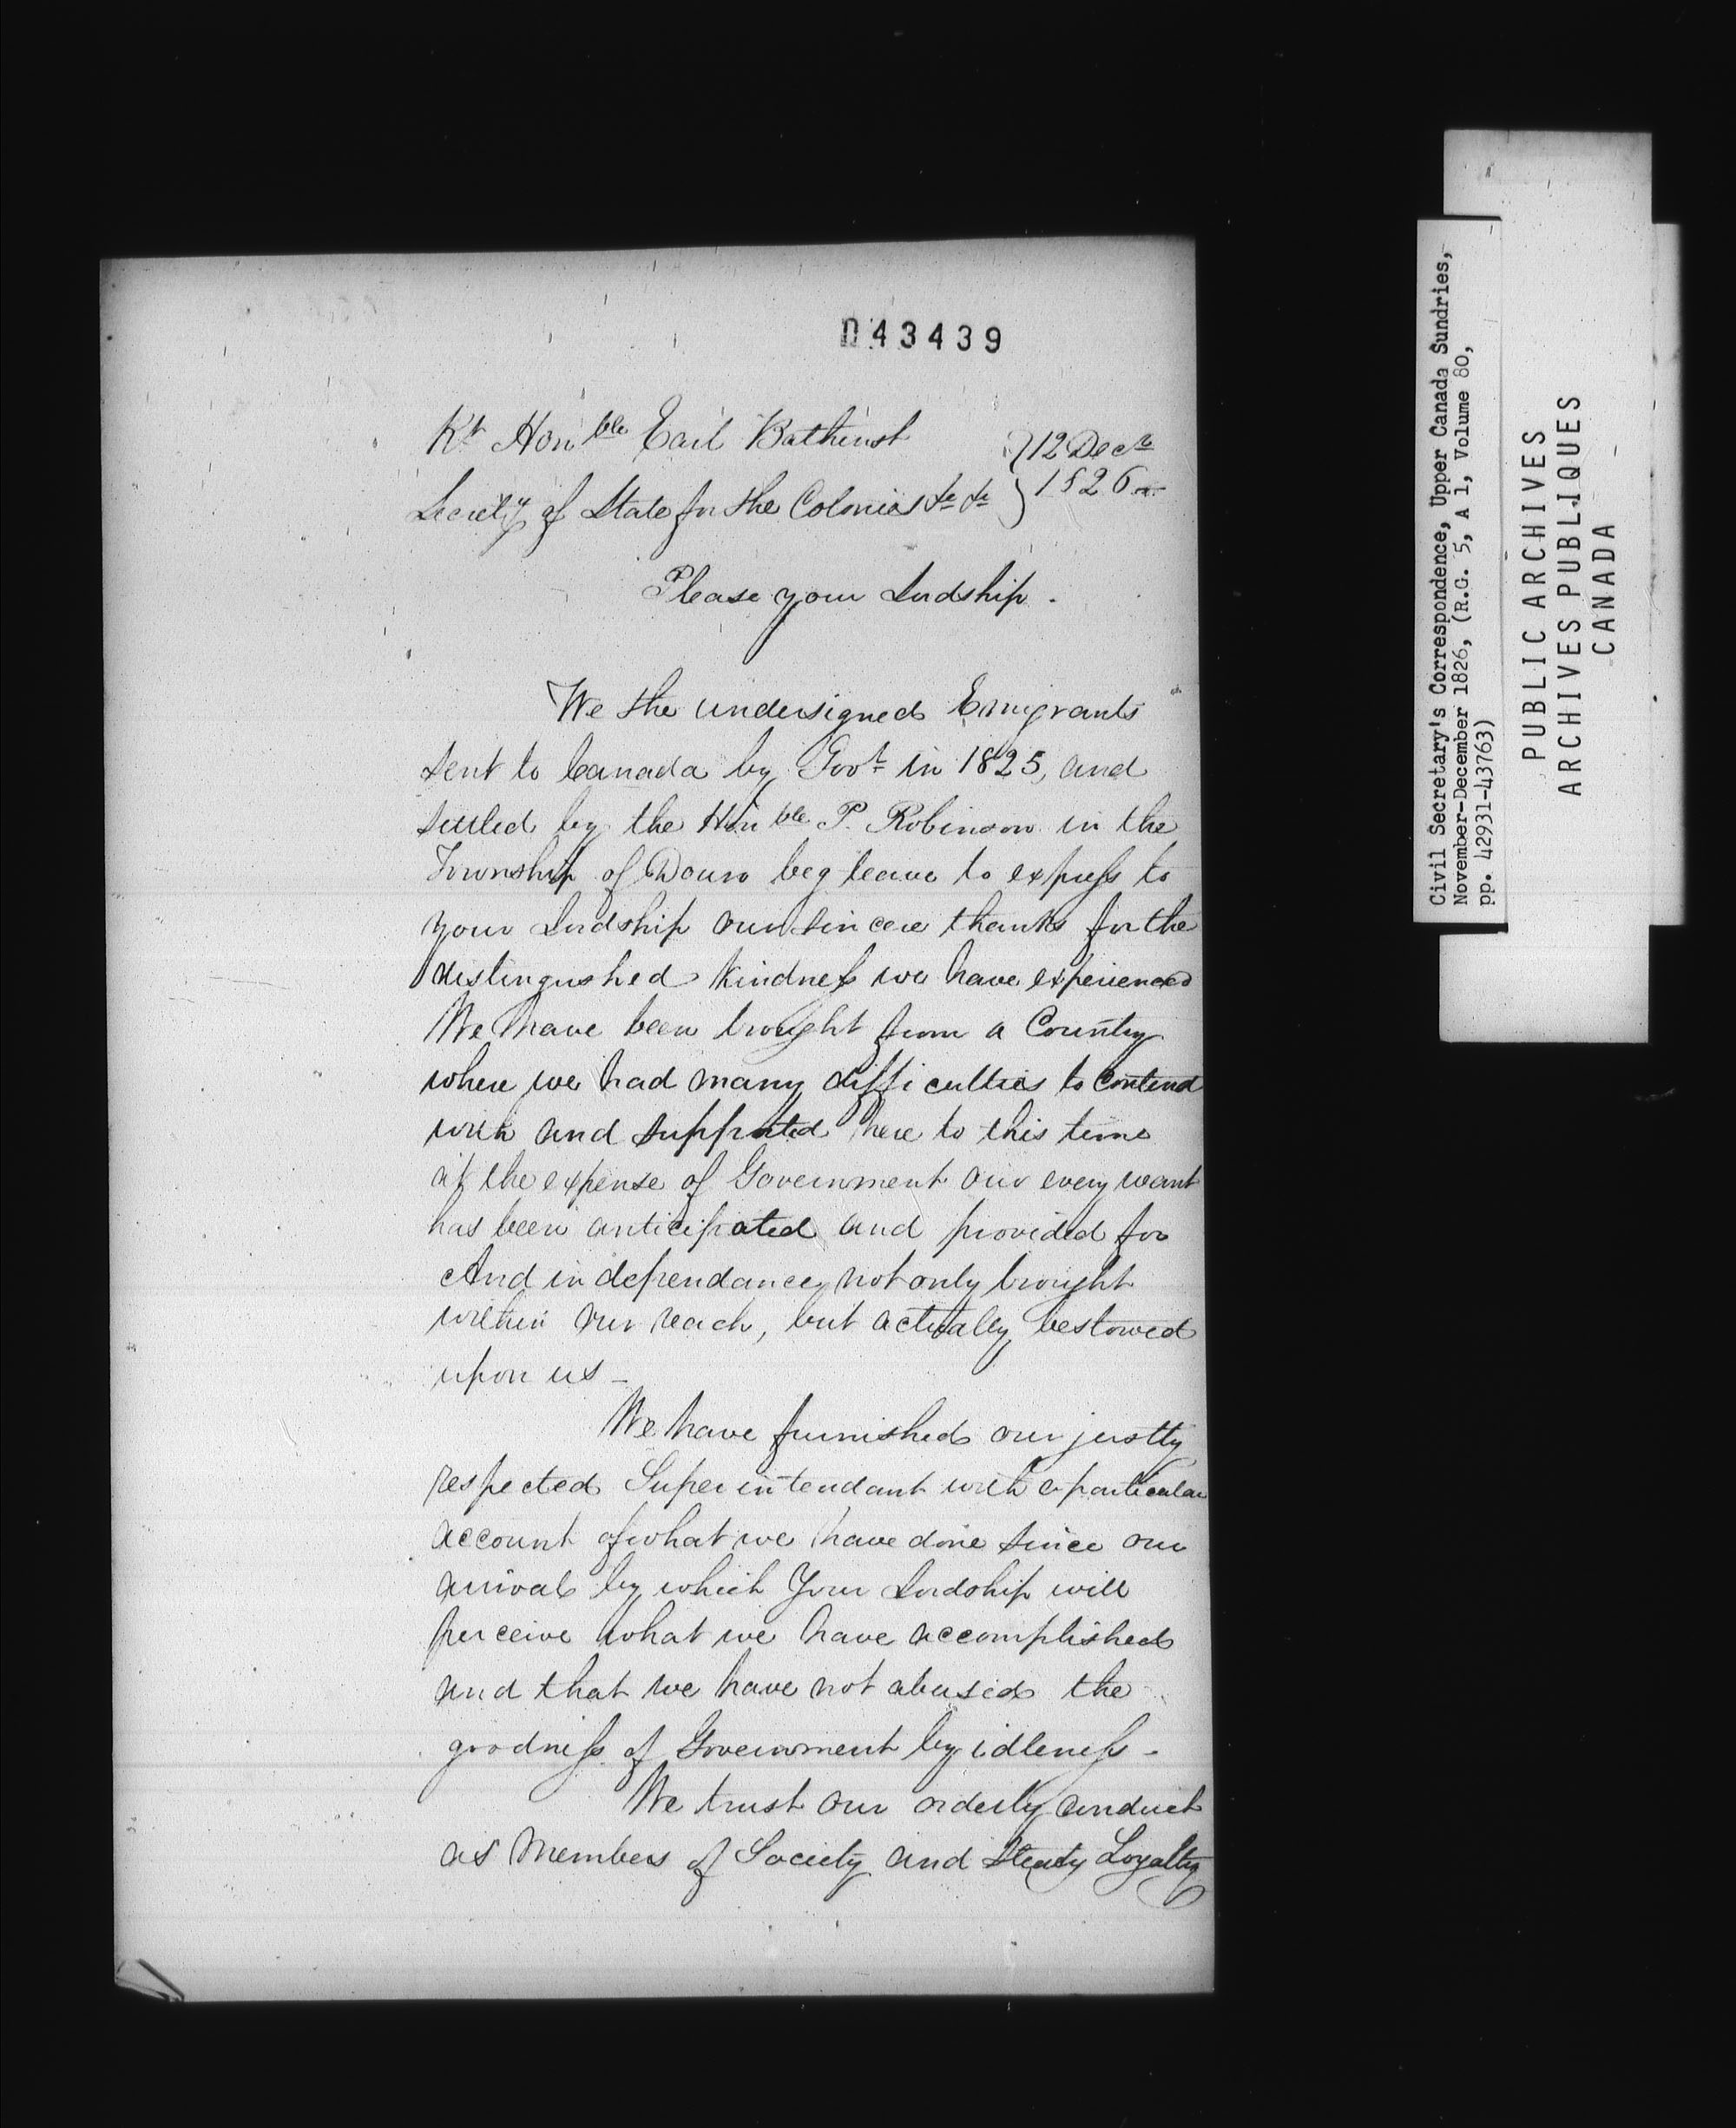 043439
Rt Honble Earl Bathurst
Secrety of State for the Colonies &c &c
} 12 Decr
1826
Please your Lordship.
We the undersigned Emigrants
sent to Canada by Govt in 1825, and
settled by the Honble P. Robinson in the
Township of Douro beg leave to express to
your Lordship our sincere thanks for the
distingushed kindness we have experienced
We have been brought from a Country
where we had many difficulties to contend
with and supported here to this time
at the expense of Government our every want
has been anticipated and provided for
And independance not only brought
within our reach, but actually bestowed
upon us -
We have furnished our justly
respected Superintendant with a particular
account of what we have done since our
arrival by which Your Lordship will
perceive what we have accomplished
and that we have not abused the
goodness of Government by idleness -
We trust our orderly conduct
as Members of Society and Steady Loyalty
Civil Secretary's Correspondence, Upper Canada Sundries,
November-December 1826, (R.G. 5, A 1, Volume 80,
pp. 42931-43763)
PUBLIC ARCHIVES
ARCHIVES PUBLIQUES
CANADA